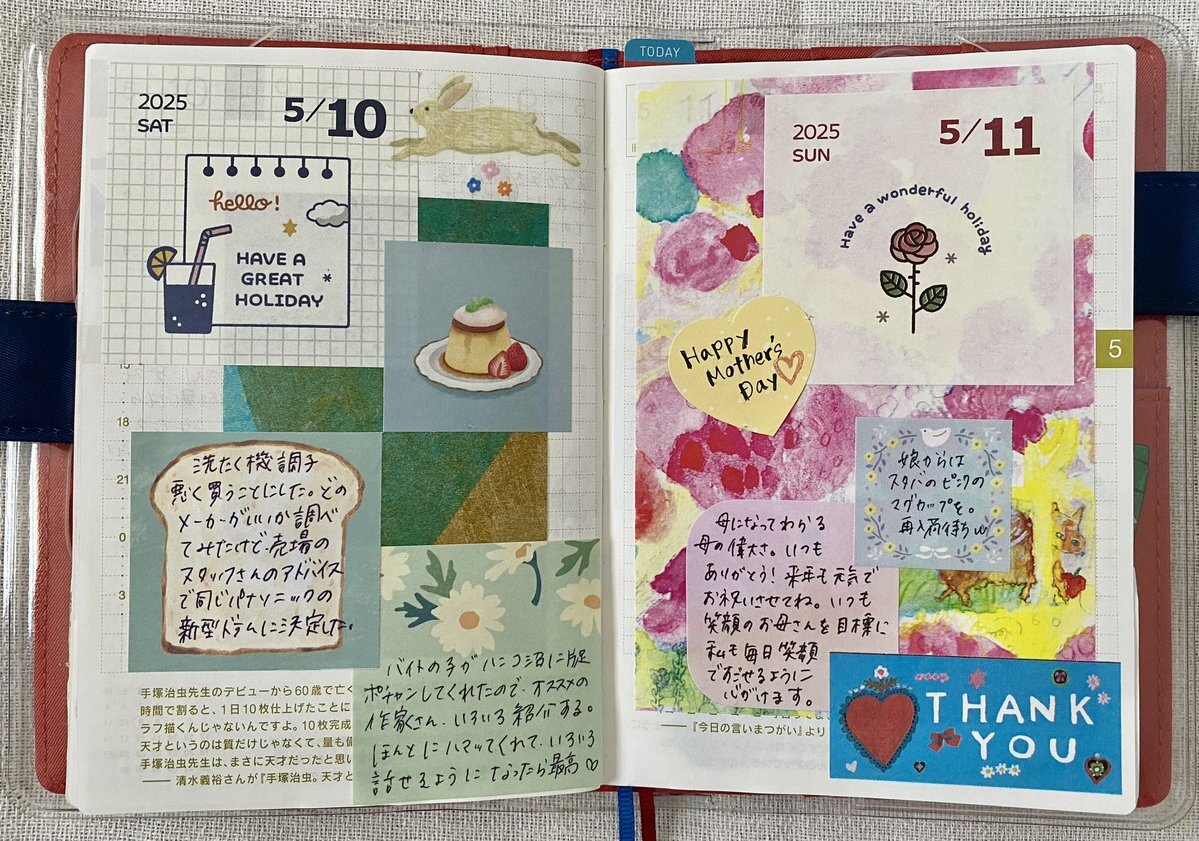 TODAY
2025
SAT
5/10
hello!
HAVE A
GREAT
HOLIDAY
18
21
0
3
洗たく機調子
悪く買うことにした。どの
メーカーがいいか調べ
てみたけど、売場の
スタッフさんのアドバイス
で同じパナソニックの
新型ドラムに決定した。
バイトの子がハンコ沼に片足
ポチャンしてくれたので、オススメの
作家さん、いろいろ紹介する。
ほんとにハマッてくれて、いろいろ
話せるようになったら最高♡
手塚治虫先生のデビューから60歳で亡く
時間で割ると、1日10枚仕上げたことに
ラフ描くんじゃないんですよ。10枚完成
天才というのは質だけじゃなくて、量も
手塚治虫先生は、まさに天才だったと思い
── 清水義裕さんが『手塚治虫。天才と
2025
SUN
5/11
Have a wonderful holiday
5
Happy
Mother's
Day
娘からは
スタバのピンクの
マグカップを。
再入荷待ちw
母になってわかる
母の偉大さ。いつも
ありがとう！来年も元気で
お祝いさせてね。いつも
笑顔のお母さんを目標に
私も毎日笑顔
ですごせるように
心がけます。
──『今日の言いまつがい』より
THANK
YOU